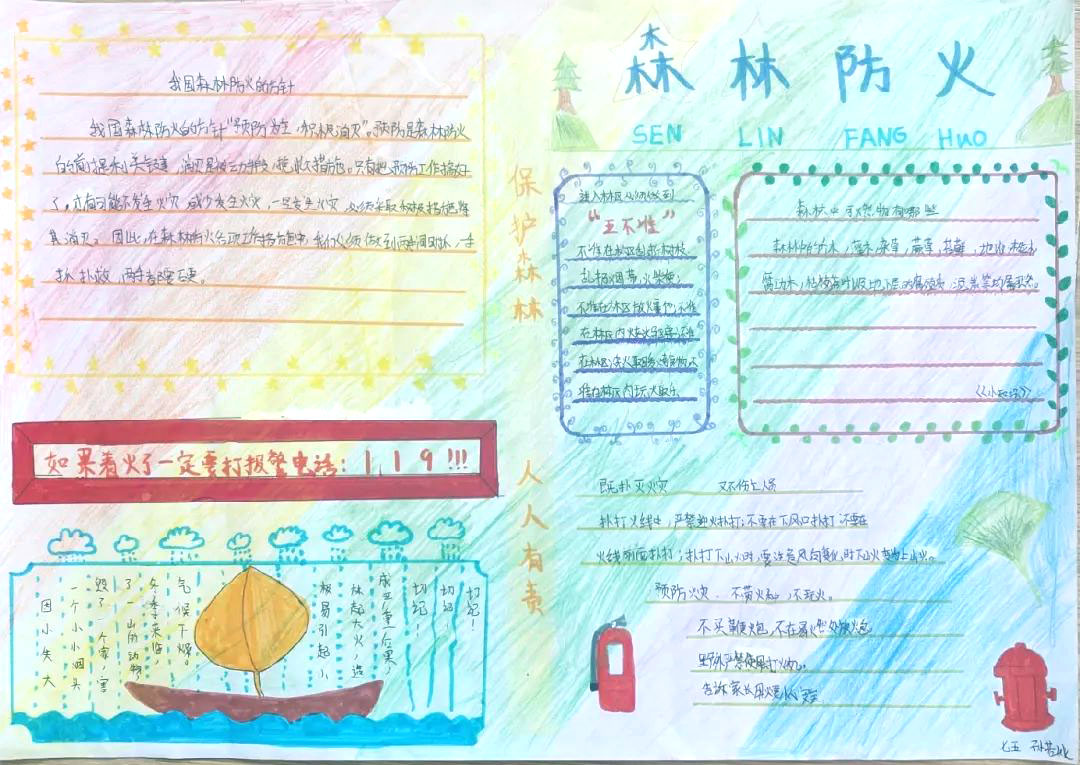 森林防火
SEN LIN FANG HUO
我国森林防火的方针
我国森林防火的方针“预防为主，积极消灭”。预防是森林防火
的前提和关键，消灭是被动手段、挽救措施。只有把预防工作搞好
了，才有可能不发生火灾，减少发生火灾，一旦发生火灾，必须采取积极措施将
其消灭。因此，在森林防火各项工作措施中，我们必须做到两首同时抓，一手
抓扑救，两者都要硬。
保护森林
人人有责
进入林区必须做到
“五不准”
不准在林区
乱扔烟蒂，火柴梗；
不准在林区放爆竹；不准
在林区内烧火驱兽；不准
在林区
准在林区内玩火取乐
森林中可燃物有哪些
森林中的乔木，灌木，杂草，蕨类，苔藓，地表枯木，
腐朽木，枯枝落叶以及地下层的腐殖质，泥炭等均属可燃。
《小知识》
如果着火了一定要打报警电话：119!!!
切记！
切记！
切记！
成严重后果，
林起大火，造
极易引起小
气候干燥。
冬季来临，
了一山的动物
毁了一个家，害
一个小小烟头
因小失大
既扑灭火灾 又不伤亡人员
扑打火线中，严禁迎火扑打；不要在下风口扑打；不要在
火线前面扑打；扑打下山火时，要注意风向变化时下山火变为上山火。
预防火灾、不带火种，不玩火。
不买 炮，不在易火 处放火炮
野外严禁使用打火机。
告诉家长用火 安全
七五